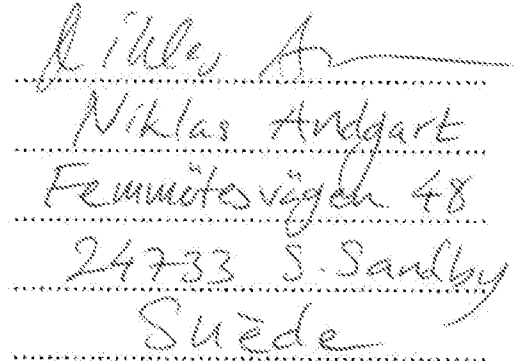 Niklas A
Niklas Andgart
Femmötesvägen 48
24733 S. Sandby
Suède